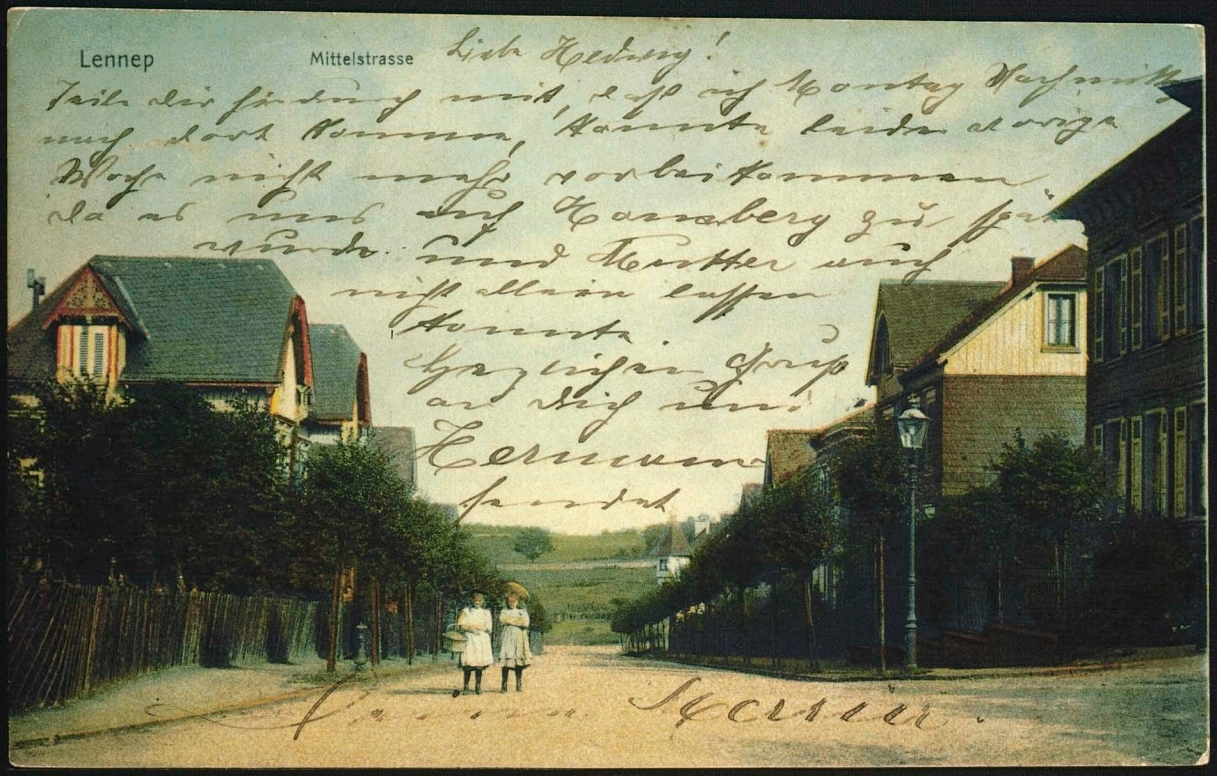 Lennep
Mittelstrasse
Liebe Hedwig!
Teile dir hierdurch mit, daß ich Montag Nachmitt
nach dort komme, konnte leider vorige
Woche nicht mehr vorbeikommen
da es uns auf Homberg zu spät
wurde. und Mutter auch
nicht allein lassen
konnte.
Herzlichen Gruß
an Dich und
Hermann
sendet